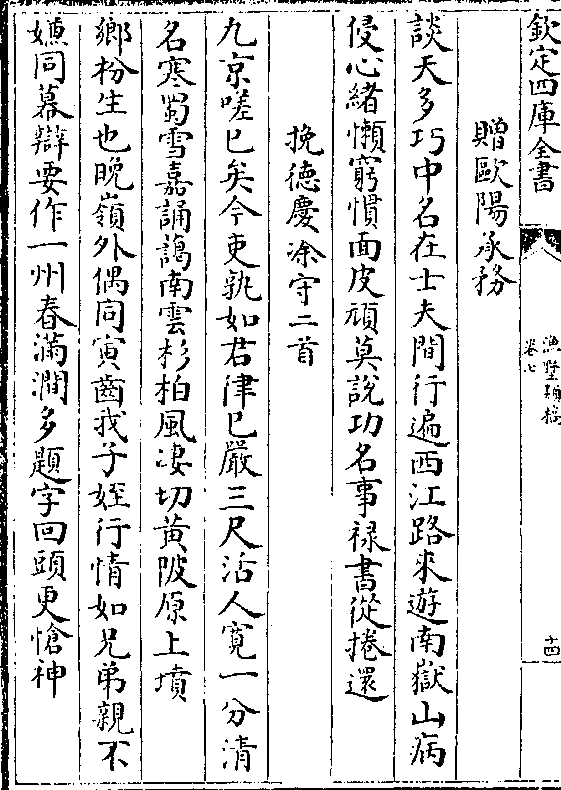 欽定四庫全書
漁墅類稿
卷七
十四
贈歐陽承務
談天多巧中名在士夫間行遍西江路來遊南嶽山病
侵心緒懶窮慣面皮頑莫說功名事禄書從捲還
挽德慶涂守二首
九京嗟已矣今吏孰如君律已嚴三尺活人寛一分清
名寒蜀雪嘉誦藹南雲杉柏風凄切黄陂原上墳
鄉枌生也晚嶺外偶同寅齒我子姪行情如兄弟親不
嫌同幕辯要作一州春滿澗多題字回頭更愴神